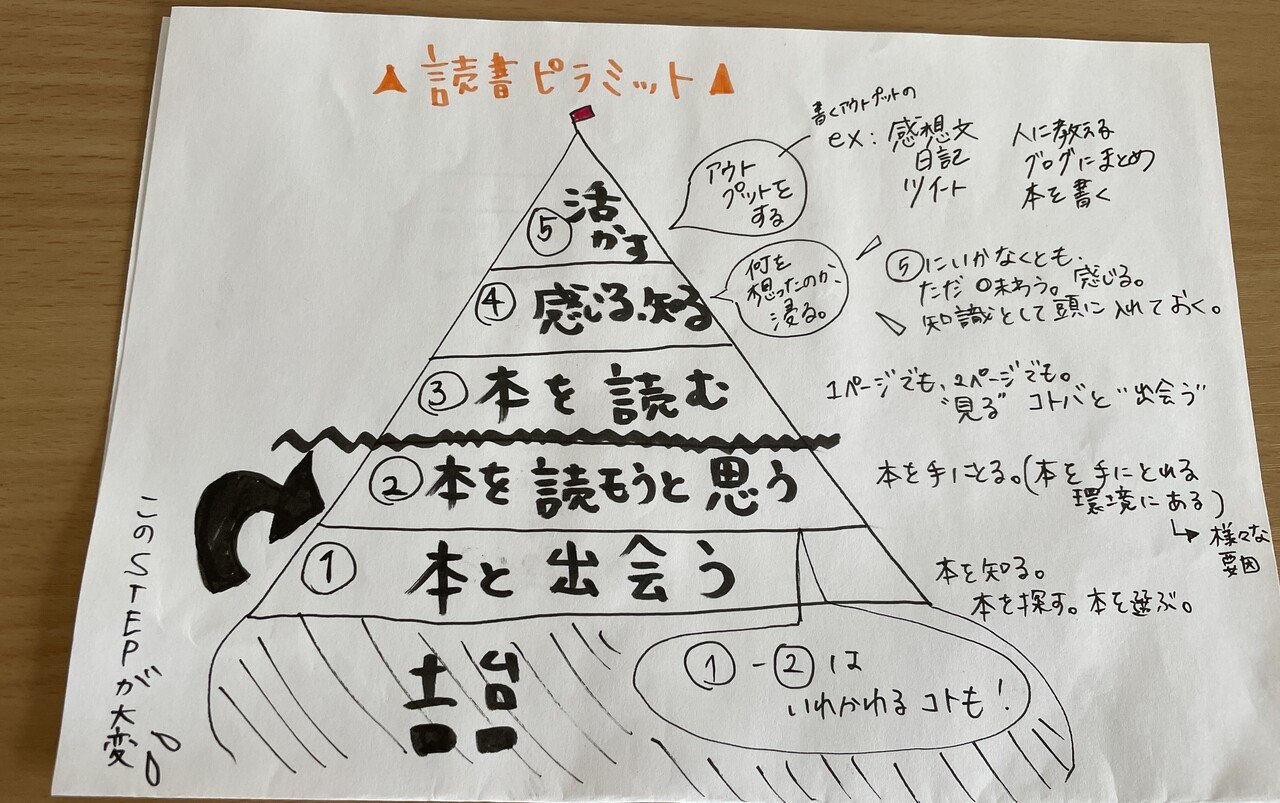 ▲読書ピラミット▲
⑤活
かす
アウト
プットを
する
書くアウトプットの
ex: 感想文 人に教える
日記 ブログにまとめ
ツイート 本を書く
④感じる、知る
何を
想ったのか、
浸る。
⑤にいかなくとも、
ただ味わう。感じる。
知識として頭に入れておく。
③本を読む
1ページでも、2ページでも。
"見る" コトバと"出会う"
②本を読もうと思う
本を手にとる。(本を手にとれる
環境にある)
↳様々な
要因
①本と出会う
本を知る。
本を探す。本を選ぶ。
このSTEPが大変
土台
①-②は
いれかわるコトも!